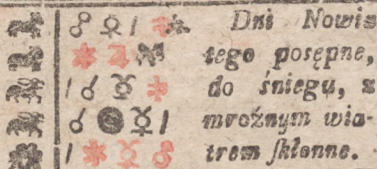 Dni Nowiu
tego posępne,
do śniegu, z
mroźnym wia-
trem ſkłonne.